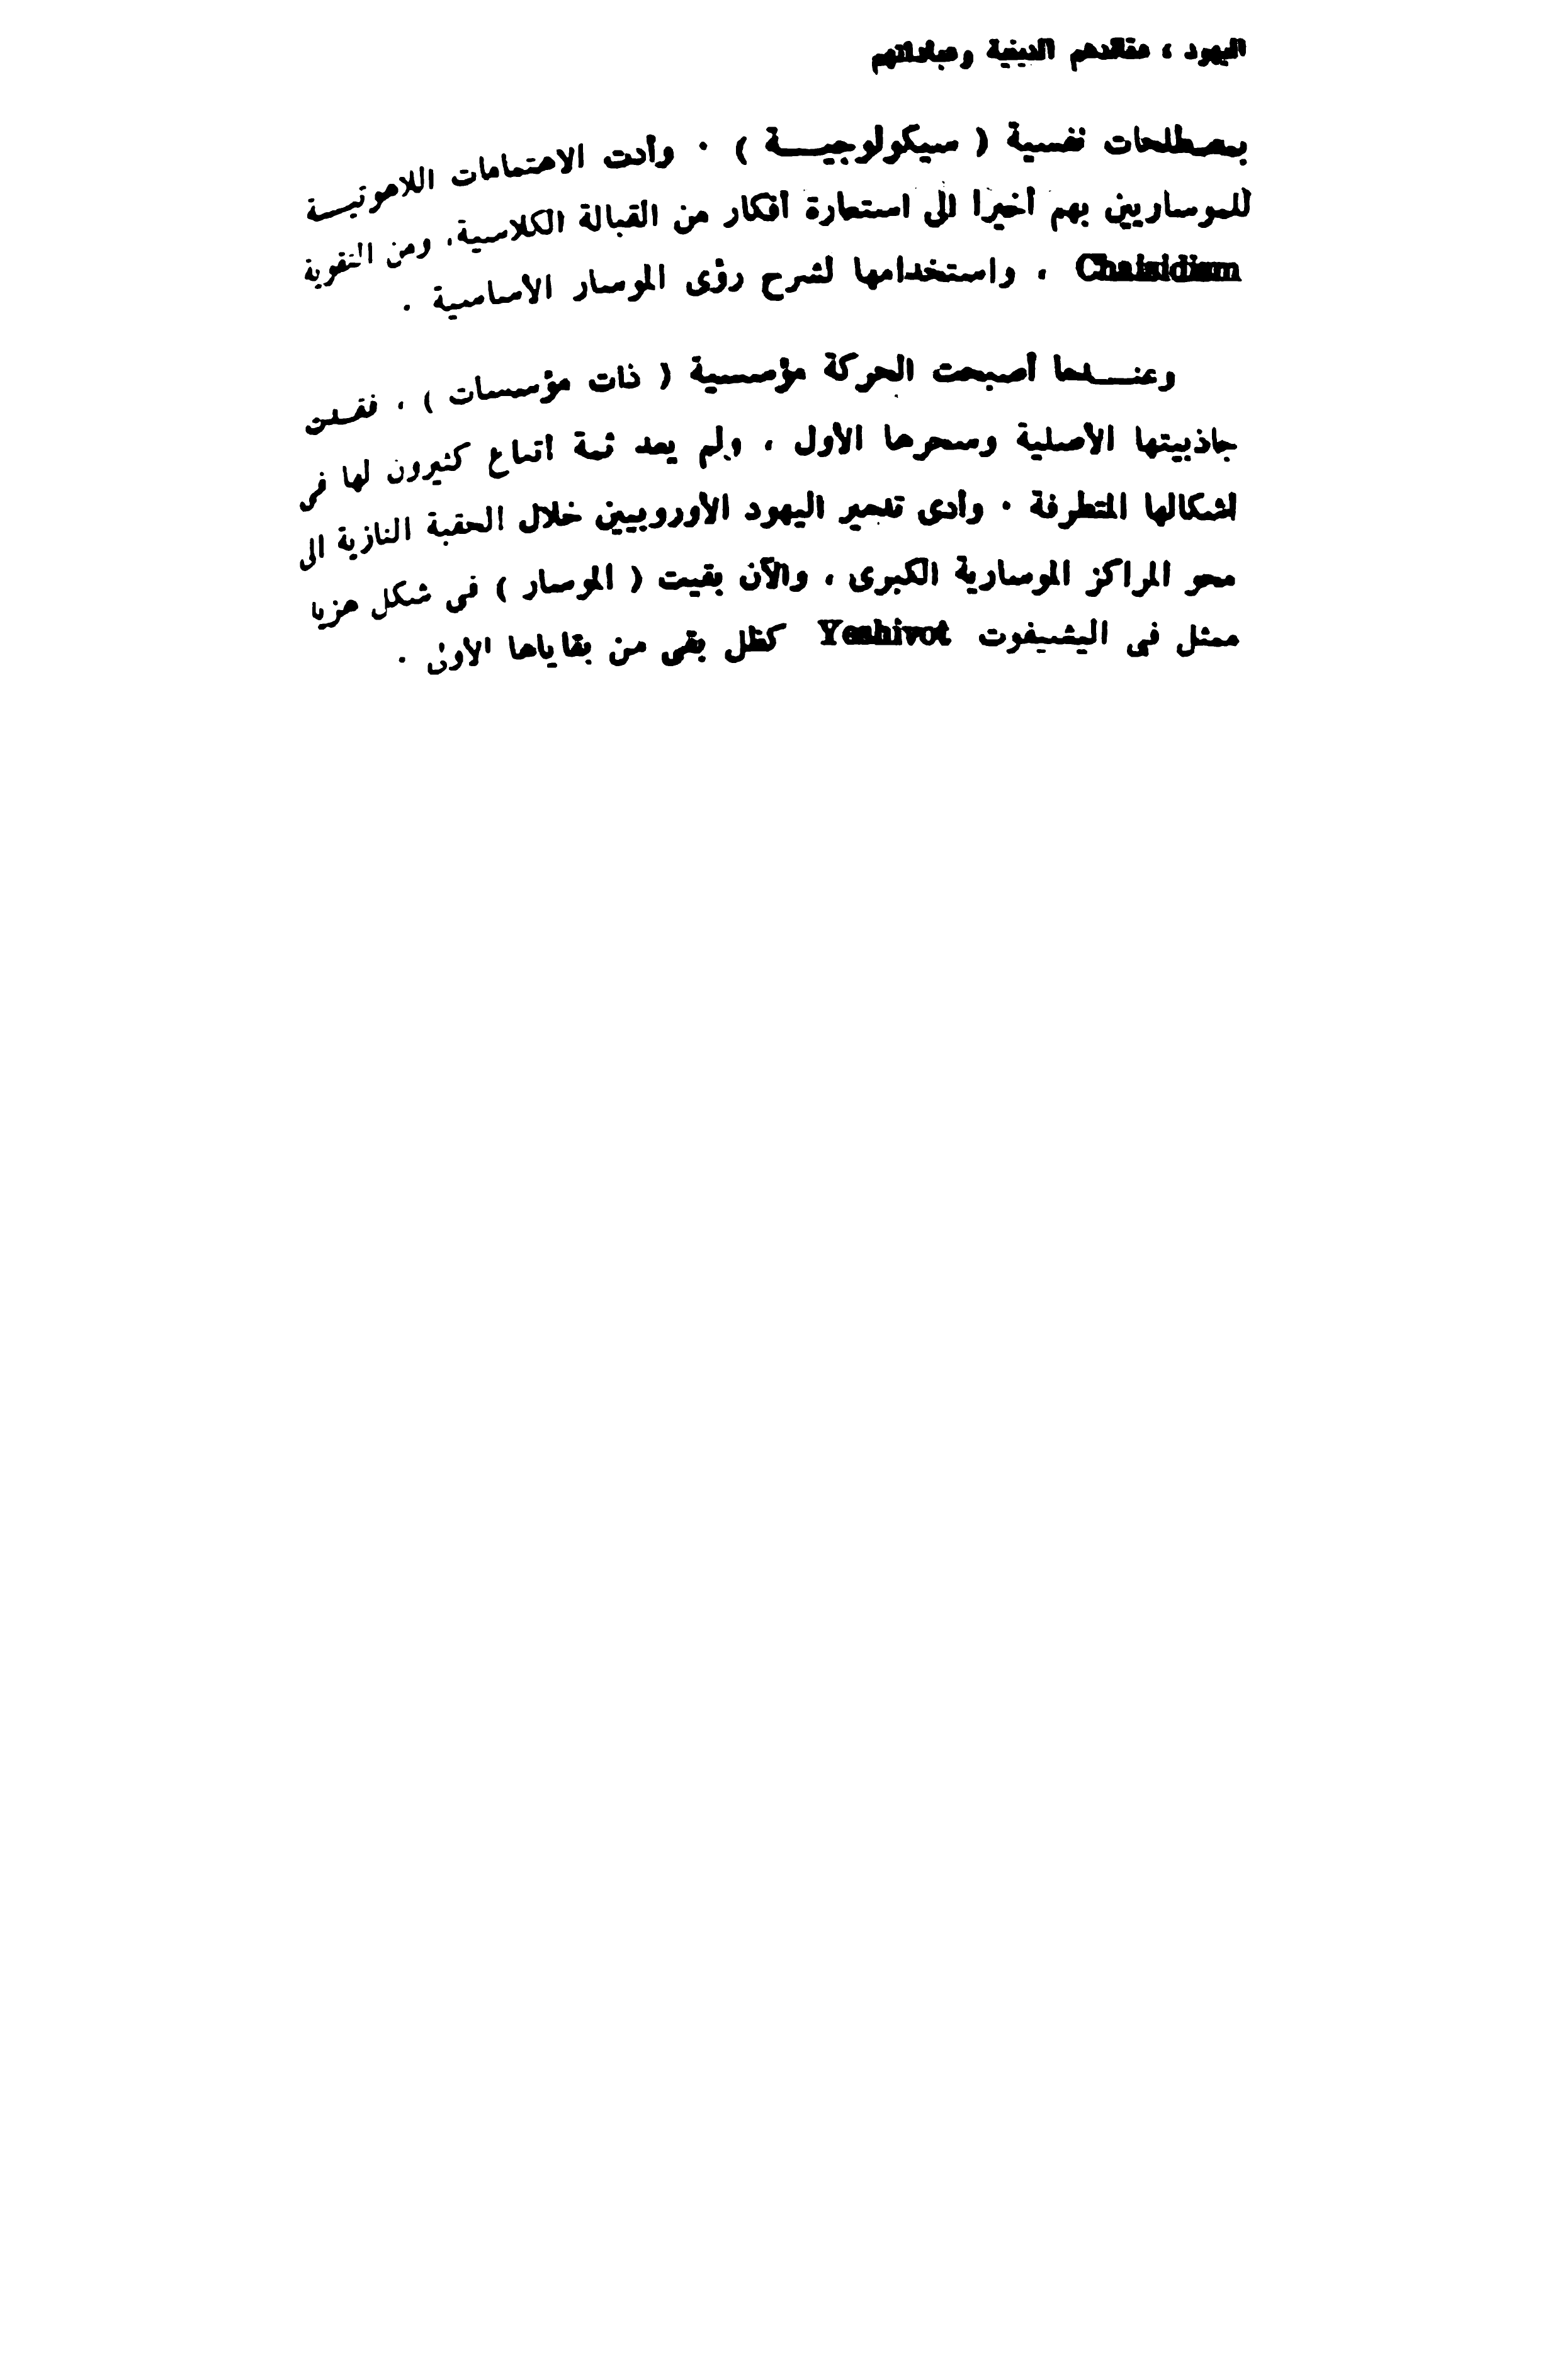 اليهود ، عقائدهم الدينية وعباداتهم
بمصطلحات نفسية ( سيكولوجيـــة ) . وأدت الاهتمامات اللاهوتيـــة
للموساريين بهم أخيرا الى استعارة أفكار من القبالة الكلاسية، ومن التقوية
Chaisidism ، واستخدامها لشرح رؤى الموسار الأساسية .
وعنـــدما أصبحت الحركة مؤسسية ( ذات مؤسسات ) ، فقـدت
جاذبيتها الأصلية وسحرها الأول ، ولم يعد ثمة اتباع كثيرون لها فى
أشكالها المتطرفة . وأدى تدمير اليهود الأوروبيين خلال الحقبة النازية الى
محو المراكز الموسارية الكبرى ، والآن بقيت ( الموسار ) فى شكل
ممثل فى اليشيفوت Yeshivot كظل بقى من بقاياها الأولى .